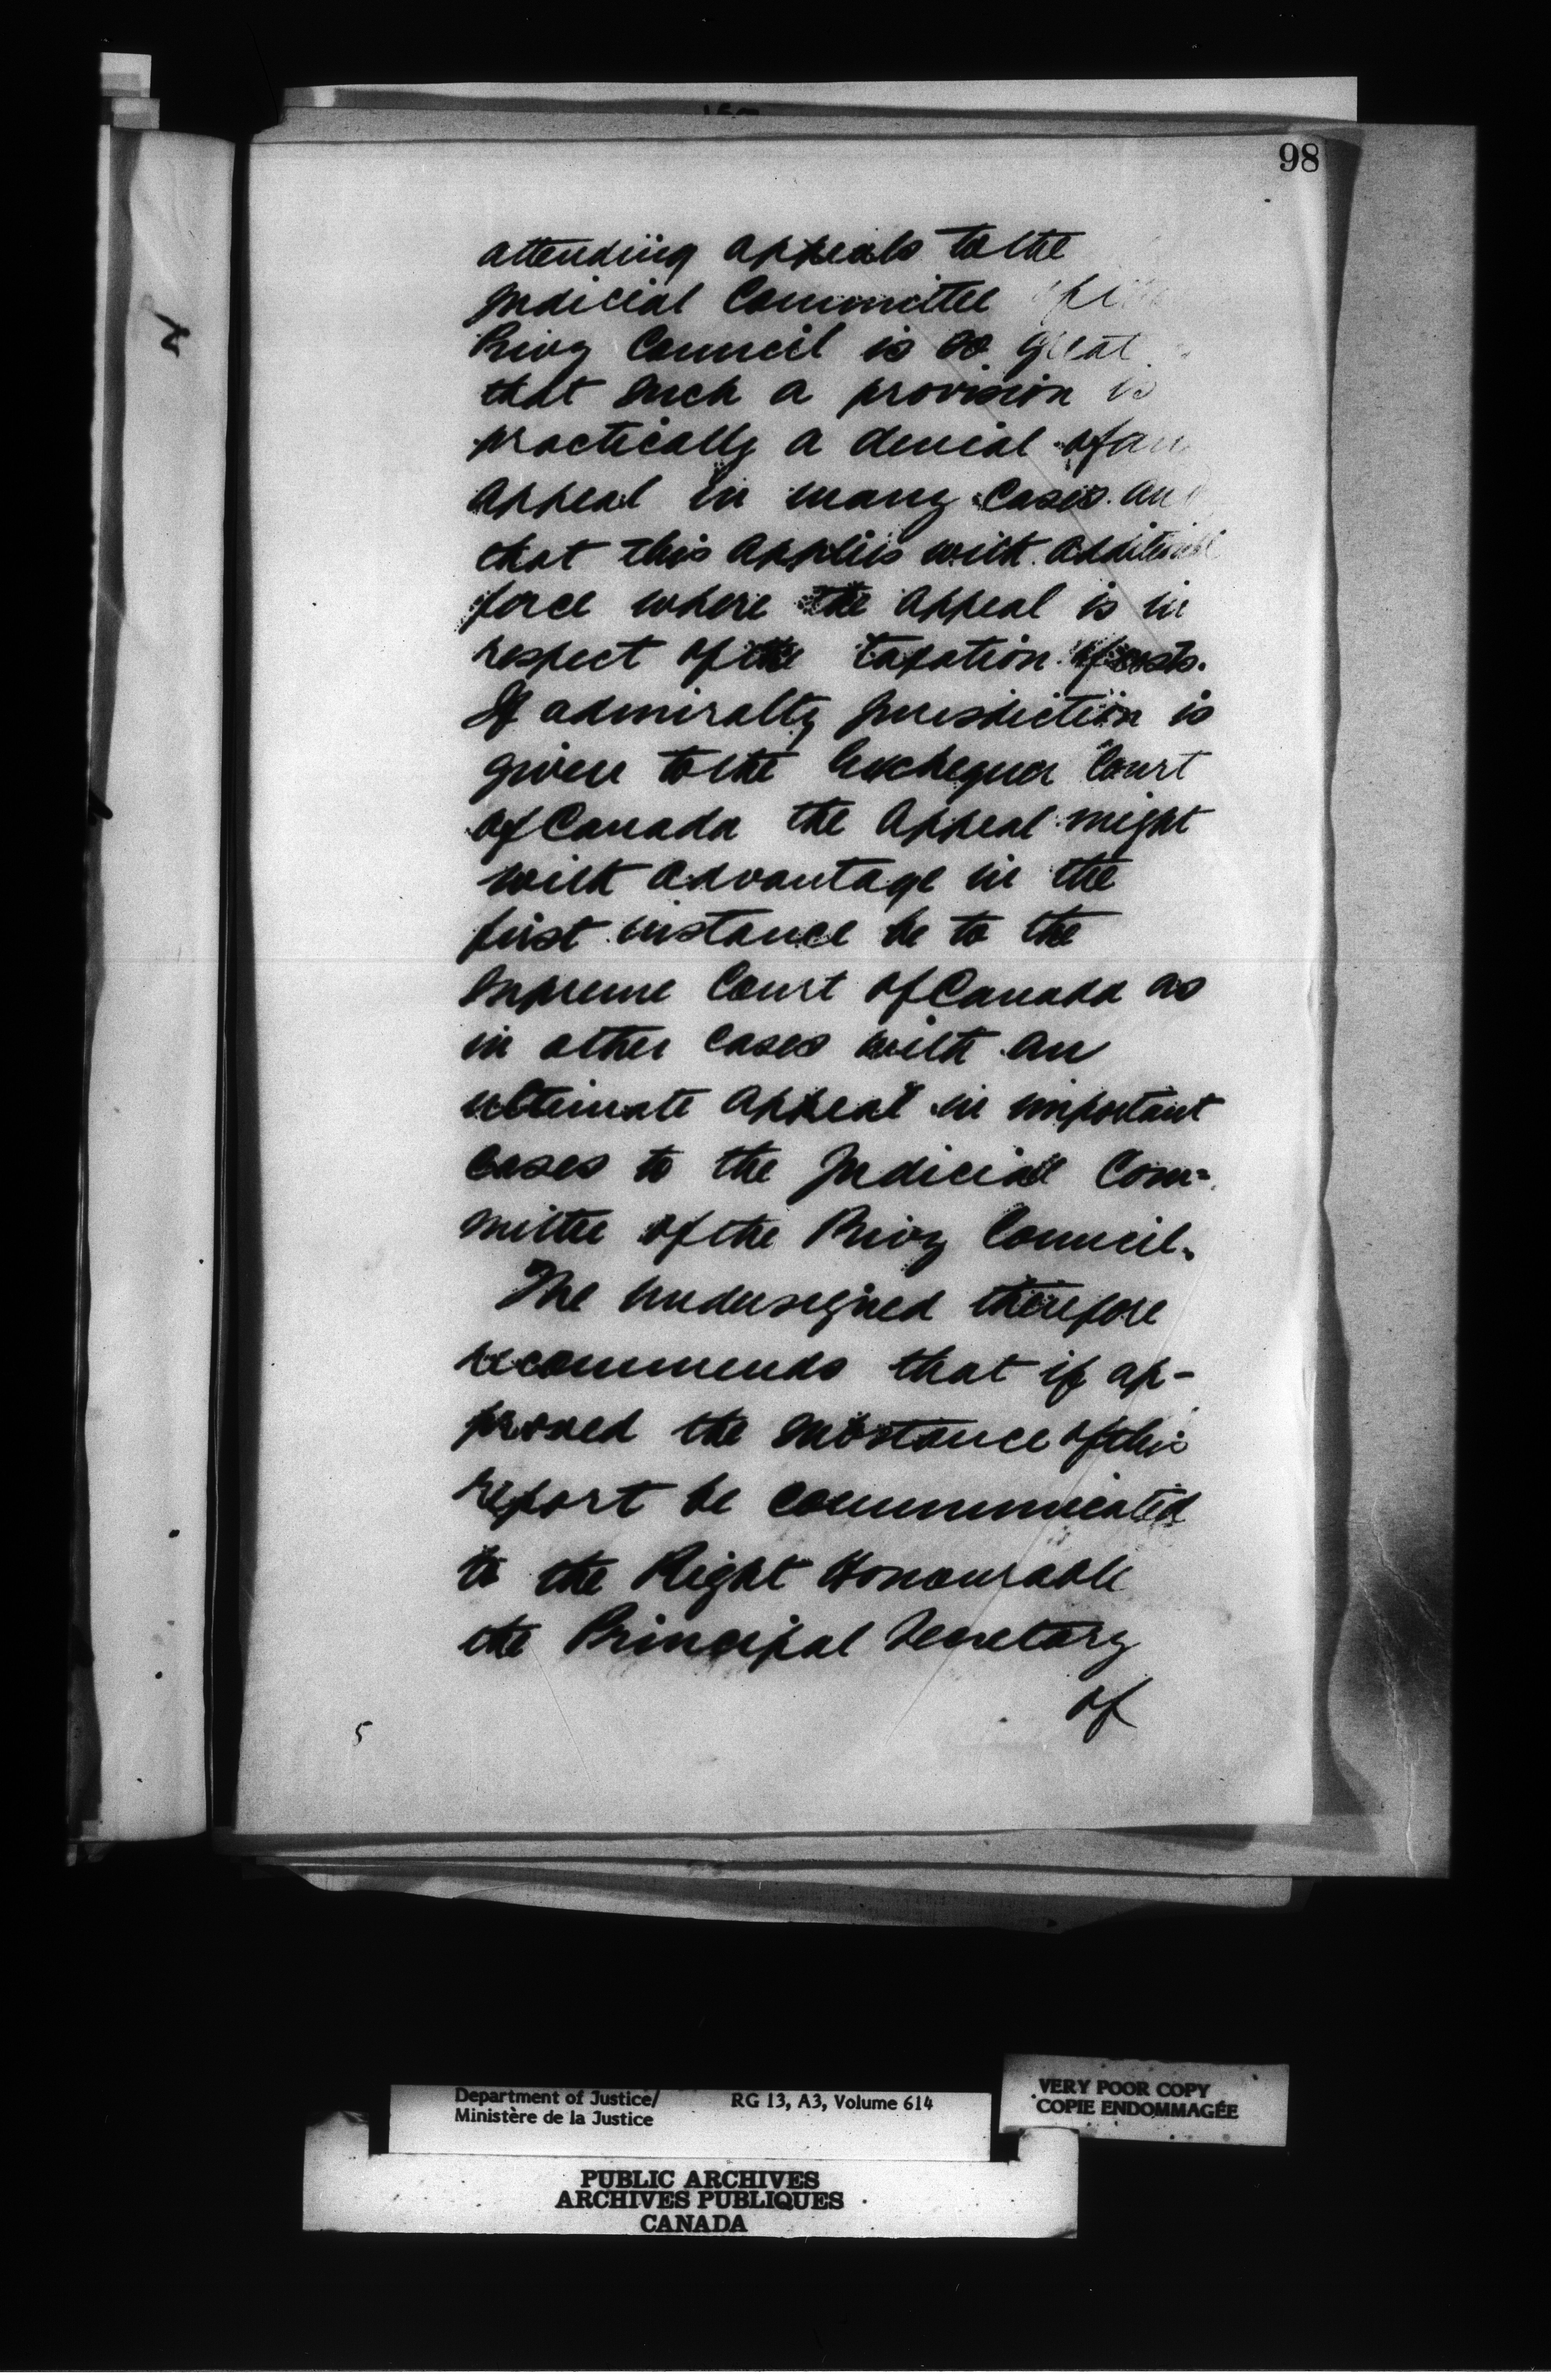 98
attending appeals to the
Judicial Committee
Privy Council is so great
that such a provision is
practically a denial of an
appeal in many cases. and
that this applies with additional
force where the appeal is in
respect of the taxation of costs.
If admiralty jurisdiction is
given to the Exchequer Court
of Canada the appeal might
with advantage in the
first instance be to the
Supreme Court of Canada as
in other cases with an
ultimate appeal in important
cases to the Judicial Com=
mittee of the Privy Council.
The undersigned therefore
recommends that if ap-
proved the substance of this
report be communicated
to the Right Honourable
the Principal Secretary
of
5
Department of Justice/ RG 13, A3, Volume 614
Ministère de la Justice
VERY POOR COPY
COPIE ENDOMMAGÉE
PUBLIC ARCHIVES
ARCHIVES PUBLIQUES
CANADA